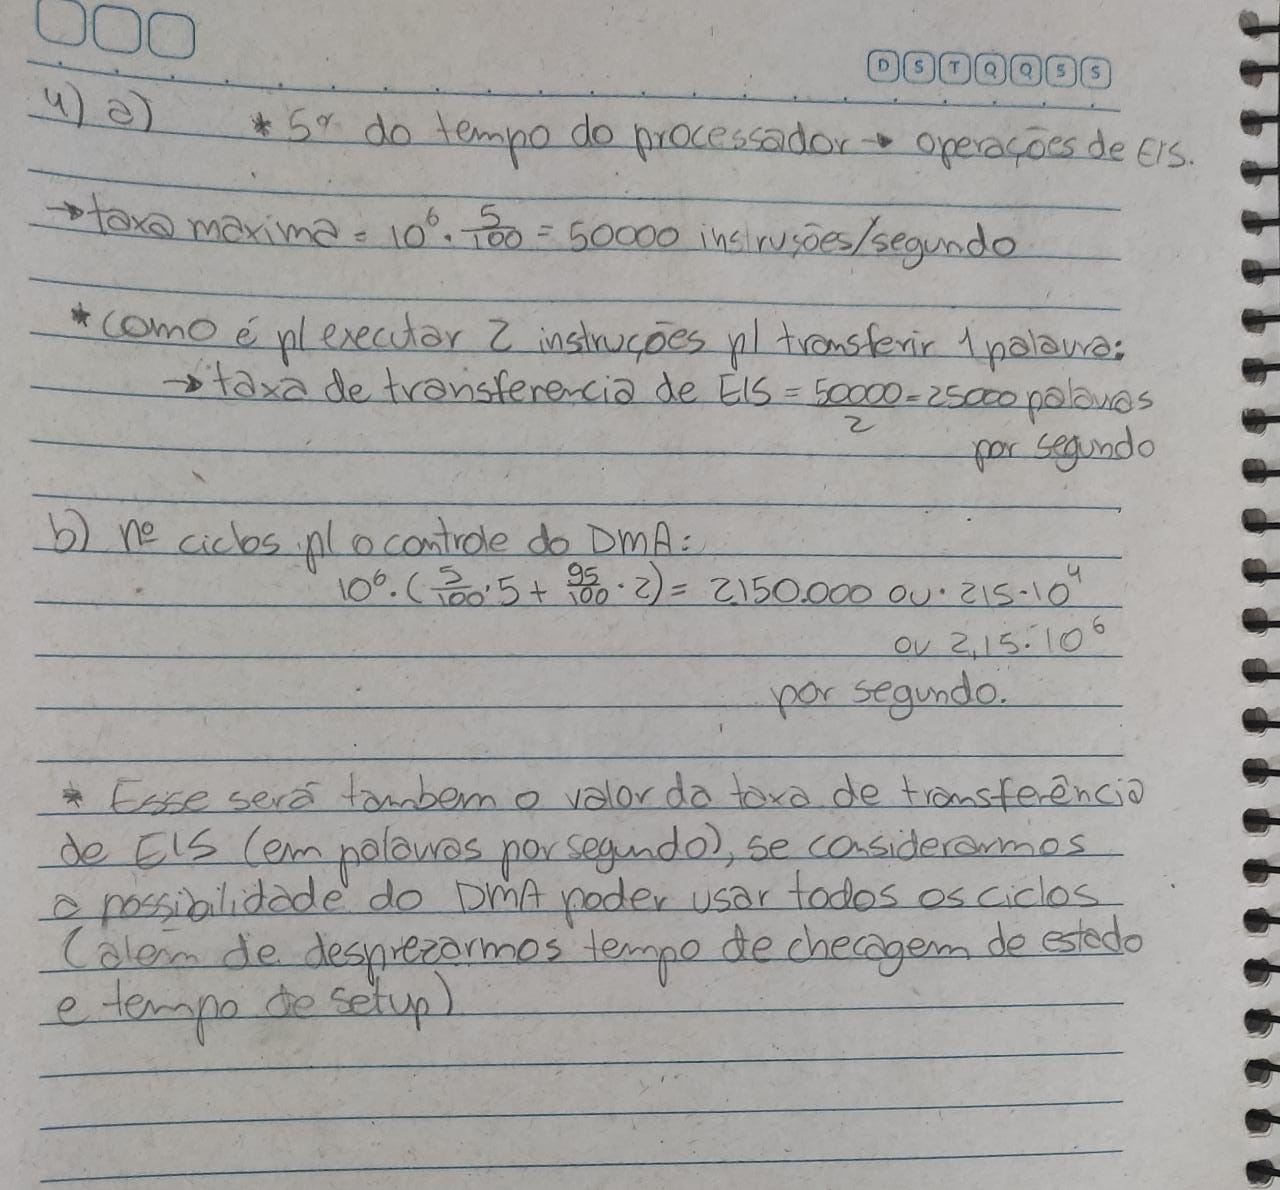 D S T Q Q S S
4) a) * 5% do tempo do processador → operações de E/S.
→ taxa maxima = 10⁶ · 5/100 = 50000 instrusões/segundo
* como é p/ executar 2 instruções p/ transferir 1 palavra:
→ taxa de transferencia de E/S = 50000/2 = 25000 palavras
por segundo
b) nº ciclos p/ o controle do DMA:
10⁶ · (5/100 · 5 + 95/100 · 2) = 2.150.000 ou · 215 · 10⁴
ou 2,15 · 10⁶
por segundo.
* Esse será tambem o valor da taxa de transferência
de E/S (em palavras por segundo), se considerarmos
a possibilidade do DMA poder usar todos os ciclos
(alem de desprezarmos tempo de checagem de estado
e tempo de setup)